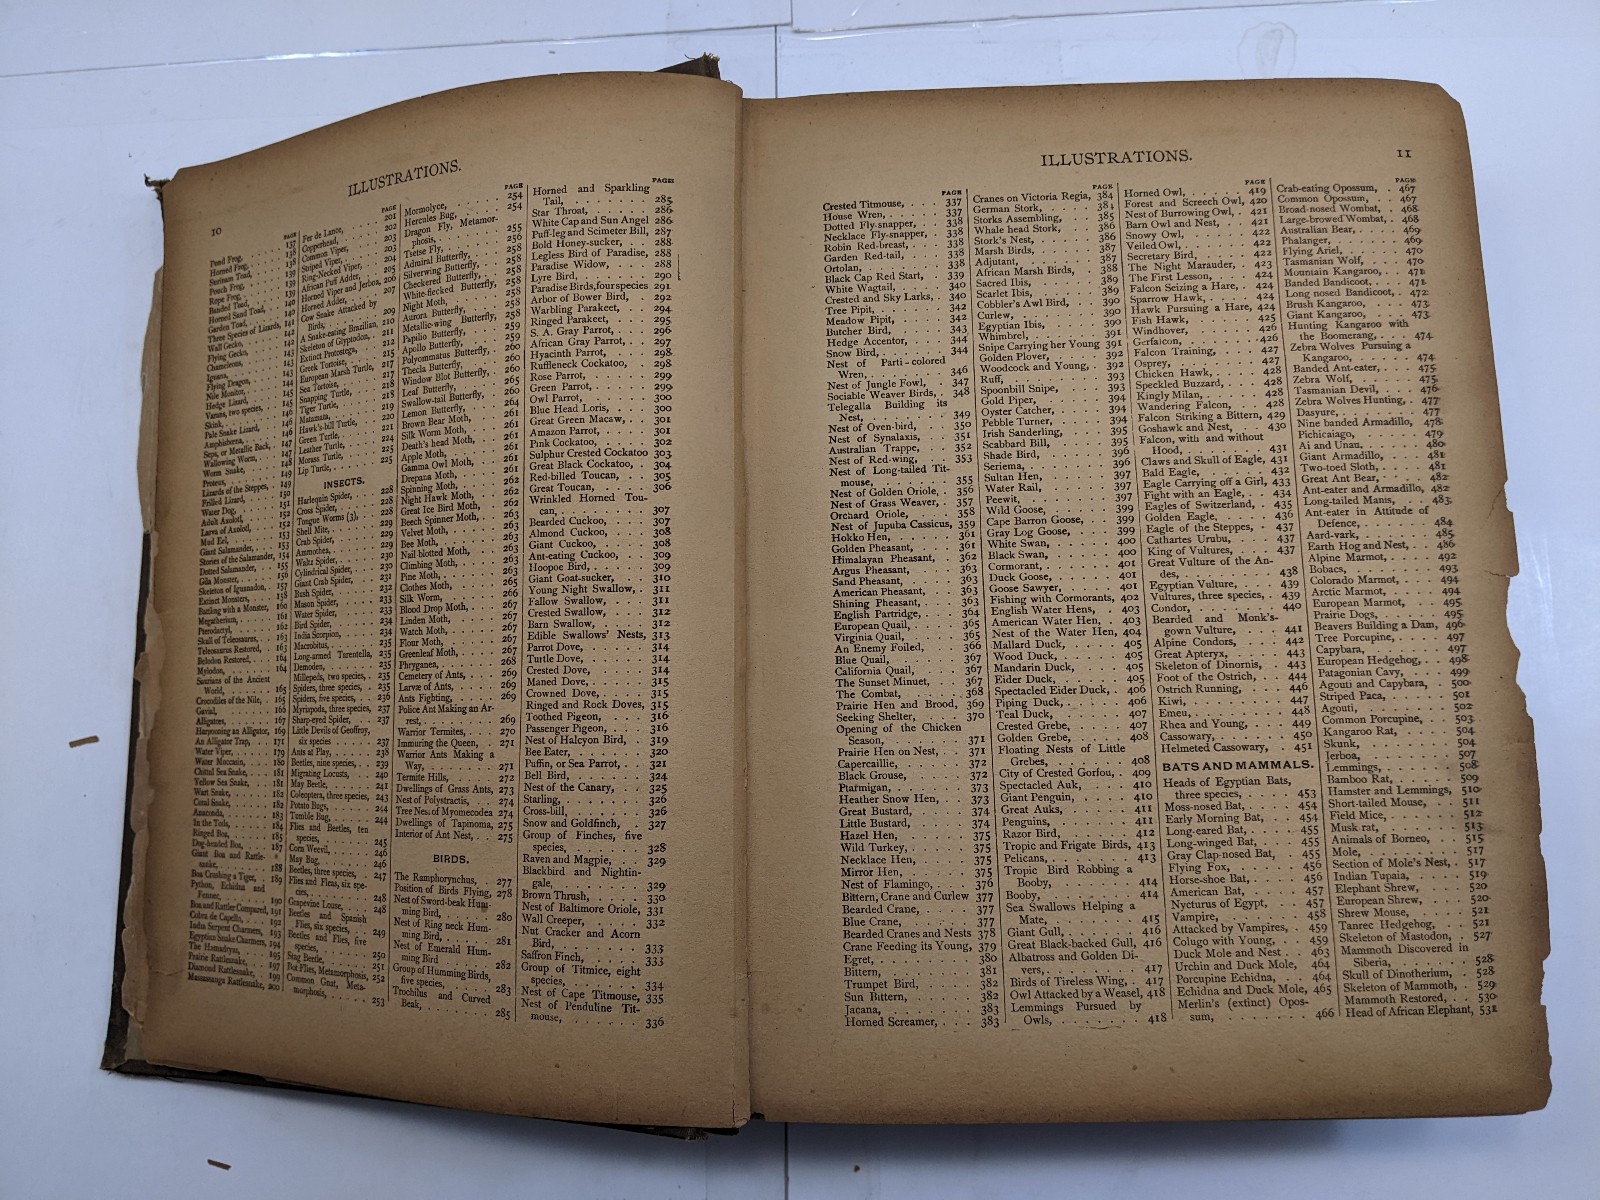 10
ILLUSTRATIONS.
PAGE
Pond Frog, 137
Horned Frog, 138
Surinam Toad, 138
Pouch Frog, 139
Rope Frog, 139
Banded Toad, 139
Horned Sand Toad, 140
Garden Toad, 140
Three Species of Lizards, 141
Wall Gecko, 142
Flying Gecko, 142
Chameleons, 143
Iguana, 143
Flying Dragon, 143
Nile Monitor, 144
Hedge Lizard, 145
Varans, two species, 145
Skink, 146
Pale Snake Lizard, 146
Amphisbœna, 146
Seps, or Metallic Back, 147
Wallowing Worm, 147
Worm Snake, 148
Proteus, 149
Lizards of the Steppes, 149
Frilled Lizard, 150
Water Dog, 151
Adult Axolotl, 152
Larva of Axolotl, 152
Mud Eel, 153
Giant Salamander, 153
Stories of the Salamander, 154
Dotted Salamander, 155
Gila Monster, 156
Skeleton of Iguanodon, 157
Extinct Monsters, 158
Battling with a Monster, 160
Megatherium, 161
Pterodactyl, 162
Skull of Teleosaurus, 163
Teleosaurus Restored, 163
Belodon Restored, 164
Mylodon, 164
Saurians of the Ancient
World, 165
Crocodiles of the Nile, 165
Gavial, 166
Alligators, 167
Harpooning an Alligator, 169
An Alligator Trap, 171
Water Viper, 179
Water Moccasin, 180
Chittul Sea Snake, 181
Yellow Sea Snake, 181
Wart Snake, 182
Coral Snake, 182
Anaconda, 183
In the Toils, 184
Ringed Boa, 185
Dog-headed Boa, 187
Giant Boa and Rattle-
snake, 188
Boa Crushing a Tiger, 189
Python, Echidna and
Fennec, 190
Boa and Rattler Compared, 191
Cobra de Capello, 192
India Serpent Charmers, 193
Egyptian Snake Charmers, 194
The Hamadryas, 195
Prairie Rattlesnake, 197
Diamond Rattlesnake, 199
Massasauga Rattlesnake, 200
PAGE
Fer de Lance, 201
Copperhead, 202
Common Viper, 203
Striped Viper, 203
Ring-Necked Viper, 204
African Puff Adder, 205
Horned Viper and Jerboa, 206
Horned Adder, 207
Cow Snake Attacked by
Birds, 209
A Snake-eating Brazilian, 210
Skeleton of Glyptodon, 211
Extinct Protostega, 212
Greek Tortoise, 215
European Marsh Turtle, 217
Sea Tortoise, 217
Snapping Turtle, 218
Tiger Turtle, 219
Matamata, 220
Hawk's-bill Turtle, 221
Green Turtle, 224
Leather Turtle, 224
Morass Turtle, 225
Lip Turtle, 225
INSECTS.
Harlequin Spider, 228
Cross Spider, 228
Tongue Worms (3), 228
Shell Mite, 229
Crab Spider, 229
Ammothea, 229
Waltz Spider, 230
Cylindrical Spider, 230
Giant Crab Spider, 231
Bush Spider, 232
Mason Spider, 233
Water Spider, 233
Bird Spider, 234
India Scorpion, 234
Macrobitus, 235
Long-armed Tarentella, 235
Demodex, 235
Millepeds, two species, 235
Spiders, three species, 235
Spiders, five species, 236
Myriapods, three species, 237
Sharp-eyed Spider, 237
Little Devils of Geoffroy,
six species 237
Ants at Play, 238
Beetles, nine species, 239
Migrating Locusts, 240
May Beetle, 241
Coleoptera, three species, 243
Potato Bugs, 244
Tumble Bug, 244
Flies and Beetles, ten
species, 245
Corn Weevil, 246
May Bug, 246
Beetles, three species, 247
Flies and Fleas, six spe-
cies, 248
Grapevine Louse, 248
Beetles and Spanish
Flies, six species, 249
Beetles and Flies, five
species, 250
Stag Beetle, 251
Bot Flies, Metamorphosis, 252
Common Gnat, Meta-
morphosis, 253
PAGE
Mormolyce, 254
Hercules Bug, 254
Dragon Fly, Metamor-
phosis, 255
Tsetse Fly, 256
Admiral Butterfly, 258
Silverwing Butterfly, 258
Checkered Butterfly, 258
White-flecked Butterfly, 258
Night Moth, 258
Aurora Butterfly, 258
Metallic-wing Butterfly, 258
Papilio Butterfly, 259
Apollo Butterfly, 259
Polyommatus Butterfly, 260
Thecla Butterfly, 260
Window Blot Butterfly, 260
Leaf Butterfly, 265
Swallow-tail Butterfly, 260
Lemon Butterfly, 264
Brown Bear Moth, 261
Silk Worm Moth, 261
Death's head Moth, 261
Apple Moth, 261
Gamma Owl Moth, 261
Drepana Moth, 261
Spinning Moth, 262
Night Hawk Moth, 262
Great Ice Bird Moth, 262
Beech Spinner Moth, 263
Velvet Moth, 263
Bee Moth, 263
Nail-blotted Moth, 263
Climbing Moth, 263
Pine Moth, 263
Clothes Moth, 265
Silk Worm, 266
Blood Drop Moth, 267
Linden Moth, 267
Watch Moth, 267
Flour Moth, 267
Greenleaf Moth, 267
Phryganea, 268
Cemetery of Ants, 269
Larvæ of Ants, 269
Ants Fighting, 269
Police Ant Making an Ar-
rest, 269
Warrior Termites, 270
Immuring the Queen, 271
Warrior Ants Making a
Way, 271
Termite Hills, 272
Dwellings of Grass Ants, 273
Nest of Polystractis, 274
Tree Nest of Myomecodea 274
Dwellings of Tapinoma, 275
Interior of Ant Nest, 275
BIRDS.
The Ramphorynchus, 277
Position of Birds Flying, 278
Nest of Sword-beak Hum-
ming Bird, 280
Nest of Ring neck Hum-
ming Bird, 281
Nest of Emerald Hum-
ming Bird, 282
Group of Humming Birds,
five species, 283
Trochilus and Curved
Beak, 285
PAGE
Horned and Sparkling
Tail, 285
Star Throat, 286
White Cap and Sun Angel 286
Puff-leg and Scimeter Bill, 287
Bold Honey-sucker, 288
Legless Bird of Paradise, 288
Paradise Widow, 288
Lyre Bird, 290
Paradise Birds, four species 291
Arbor of Bower Bird, 292
Warbling Parakeet, 294
Ringed Parakeet, 295
S. A. Gray Parrot, 296
African Gray Parrot, 297
Hyacinth Parrot, 298
Ruffleneck Cockatoo, 298
Rose Parrot, 299
Green Parrot, 299
Owl Parrot, 300
Blue Head Loris, 300
Great Green Macaw, 301
Amazon Parrot, 301
Pink Cockatoo, 302
Sulphur Crested Cockatoo 303
Great Black Cockatoo, 304
Red-billed Toucan, 305
Great Toucan, 306
Wrinkled Horned Tou-
can, 307
Bearded Cuckoo, 307
Almond Cuckoo, 308
Giant Cuckoo, 308
Ant-eating Cuckoo, 309
Hoopoe Bird, 309
Giant Goat-sucker, 310
Young Night Swallow, 311
Fallow Swallow, 311
Crested Swallow, 312
Barn Swallow, 312
Edible Swallows' Nests, 313
Parrot Dove, 314
Turtle Dove, 314
Crested Dove, 314
Maned Dove, 315
Crowned Dove, 315
Ringed and Rock Doves, 315
Toothed Pigeon, 316
Passenger Pigeon, 316
Nest of Halcyon Bird, 319
Bee Eater, 320
Puffin, or Sea Parrot, 321
Bell Bird, 324
Nest of the Canary, 325
Starling, 326
Cross-bill, 326
Snow and Goldfinch, 327
Group of Finches, five
species, 328
Raven and Magpie, 329
Blackbird and Nightin-
gale, 329
Brown Thrush, 330
Nest of Baltimore Oriole, 331
Wall Creeper, 332
Nut Cracker and Acorn
Bird, 333
Saffron Finch, 333
Group of Titmice, eight
species, 334
Nest of Cape Titmouse, 335
Nest of Penduline Tit-
mouse, 336
ILLUSTRATIONS.
11
PAGE
Crested Titmouse, 337
House Wren, 337
Dotted Fly-snapper, 338
Necklace Fly-snapper, 338
Robin Red-breast, 338
Garden Red-tail, 338
Ortolan, 338
Black Cap Red Start, 339
White Wagtail, 340
Crested and Sky Larks, 340
Tree Pipit, 342
Meadow Pipit, 342
Butcher Bird, 343
Hedge Accentor, 344
Snow Bird, 344
Nest of Parti-colored
Wren, 346
Nest of Jungle Fowl, 347
Sociable Weaver Birds, 348
Telegalla Building its
Nest, 349
Nest of Oven-bird, 350
Nest of Synalaxis, 351
Australian Trappe, 352
Nest of Red-wing, 353
Nest of Long-tailed Tit-
mouse, 355
Nest of Golden Oriole, 356
Nest of Grass Weaver, 357
Orchard Oriole, 358
Nest of Jupuba Cassicus, 359
Hokko Hen, 361
Golden Pheasant, 361
Himalayan Pheasant, 362
Argus Pheasant, 363
Sand Pheasant, 363
American Pheasant, 363
Shining Pheasant, 363
English Partridge, 364
European Quail, 365
Virginia Quail, 365
An Enemy Foiled, 366
Blue Quail, 367
California Quail, 367
The Sunset Minuet, 367
The Combat, 368
Prairie Hen and Brood, 369
Seeking Shelter, 370
Opening of the Chicken
Season, 371
Prairie Hen on Nest, 371
Capercaillie, 372
Black Grouse, 372
Ptarmigan, 373
Heather Snow Hen, 373
Great Bustard, 374
Little Bustard, 374
Hazel Hen, 375
Wild Turkey, 375
Necklace Hen, 375
Mirror Hen, 375
Nest of Flamingo, 376
Bittern, Crane and Curlew 377
Bearded Crane, 377
Blue Crane, 377
Bearded Cranes and Nests 378
Crane Feeding its Young, 379
Egret, 380
Bittern, 381
Trumpet Bird, 382
Sun Bittern, 382
Jacana, 383
Horned Screamer, 383
PAGE
Cranes on Victoria Regia, 384
German Stork, 384
Storks Assembling, 385
Whale head Stork, 386
Stork's Nest, 386
Marsh Birds, 387
Adjutant, 387
African Marsh Birds, 388
Sacred Ibis, 389
Scarlet Ibis, 389
Cobbler's Awl Bird, 390
Curlew, 390
Egyptian Ibis, 390
Whimbrel, 391
Snipe Carrying her Young 391
Golden Plover, 392
Woodcock and Young, 392
Ruff, 393
Spoonbill Snipe, 393
Gold Piper, 394
Oyster Catcher, 394
Pebble Turner, 394
Irish Sanderling, 395
Scabbard Bill, 395
Shade Bird, 396
Seriema, 396
Sultan Hen, 397
Water Rail, 397
Peewit, 397
Wild Goose, 399
Cape Barron Goose, 399
Gray Log Goose, 399
White Swan, 400
Black Swan, 400
Cormorant, 401
Duck Goose, 401
Goose Sawyer, 401
Fishing with Cormorants, 402
English Water Hens, 403
American Water Hen, 403
Nest of the Water Hen, 404
Mallard Duck, 405
Wood Duck, 405
Mandarin Duck, 405
Eider Duck, 405
Spectacled Eider Duck, 406
Piping Duck, 406
Teal Duck, 407
Crested Grebe, 407
Golden Grebe, 408
Floating Nests of Little
Grebes, 408
City of Crested Gorfou, 409
Spectacled Auk, 410
Giant Penguin, 410
Great Auks, 411
Penguins, 411
Razor Bird, 412
Tropic and Frigate Birds, 413
Pelicans, 413
Tropic Bird Robbing a
Booby, 414
Booby, 414
Sea Swallows Helping a
Mate, 415
Giant Gull, 416
Great Black-backed Gull, 416
Albatross and Golden Di-
vers, 417
Birds of Tireless Wing, 417
Owl Attacked by a Weasel, 418
Lemmings Pursued by
Owls, 418
PAGE
Horned Owl, 419
Forest and Screech Owl, 420
Nest of Burrowing Owl, 421
Barn Owl and Nest, 421
Snowy Owl, 422
Veiled Owl, 422
Secretary Bird, 422
The Night Marauder, 423
The First Lesson, 424
Falcon Seizing a Hare, 424
Sparrow Hawk, 424
Hawk Pursuing a Hare, 424
Fish Hawk, 425
Windhover, 426
Gerfalcon, 426
Falcon Training, 427
Osprey, 427
Chicken Hawk, 428
Speckled Buzzard, 428
Kingly Milan, 428
Wandering Falcon, 428
Falcon Striking a Bittern, 429
Goshawk and Nest, 430
Falcon, with and without
Hood, 431
Claws and Skull of Eagle, 431
Bald Eagle, 432
Eagle Carrying off a Girl, 433
Fight with an Eagle, 434
Eagles of Switzerland, 435
Golden Eagle, 436
Eagle of the Steppes, 437
Cathartes Urubu, 437
King of Vultures, 437
Great Vulture of the An-
des, 438
Egyptian Vulture, 439
Vultures, three species, 439
Condor, 440
Bearded and Monk's-
gown Vulture, 441
Alpine Condors, 442
Great Apteryx, 443
Skeleton of Dinornis, 443
Foot of the Ostrich, 444
Ostrich Running, 446
Kiwi, 447
Emeu, 448
Rhea and Young, 449
Cassowary, 450
Helmeted Cassowary, 451
BATS AND MAMMALS.
Heads of Egyptian Bats,
three species, 453
Moss-nosed Bat, 454
Early Morning Bat, 454
Long-eared Bat, 455
Long-winged Bat, 455
Gray Clap-nosed Bat, 455
Flying Fox, 456
Horse-shoe Bat, 456
American Bat, 457
Nycturus of Egypt, 457
Vampire, 458
Attacked by Vampires, 459
Colugo with Young, 459
Duck Mole and Nest 463
Urchin and Duck Mole, 464
Porcupine Echidna, 464
Echidna and Duck Mole, 465
Merlin's (extinct) Opos-
sum, 466
PAGE
Crab-eating Opossum, 467
Common Opossum, 467
Broad-nosed Wombat, 468
Large-browed Wombat, 468
Australian Bear, 469
Phalanger, 469
Flying Ariel, 470
Tasmanian Wolf, 470
Mountain Kangaroo, 471
Banded Bandicoot, 471
Long nosed Bandicoot, 472
Brush Kangaroo, 473
Giant Kangaroo, 473
Hunting Kangaroo with
the Boomerang, 474
Zebra Wolves Pursuing a
Kangaroo, 474
Banded Ant-eater, 475
Zebra Wolf, 475
Tasmanian Devil, 476
Zebra Wolves Hunting, 477
Dasyure, 477
Nine banded Armadillo, 478
Pichiciago, 479
Ai and Unau, 480
Giant Armadillo, 481
Two-toed Sloth, 481
Great Ant Bear, 482
Ant-eater and Armadillo, 482
Long-tailed Manis, 483
Ant-eater in Attitude of
Defence, 484
Aard-vark, 485
Earth Hog and Nest, 486
Alpine Marmot, 492
Bobacs, 493
Colorado Marmot, 494
Arctic Marmot, 494
European Marmot, 495
Prairie Dogs, 495
Beavers Building a Dam, 496
Tree Porcupine, 497
Capybara, 497
European Hedgehog, 498
Patagonian Cavy, 499
Agouti and Capybara, 500
Striped Paca, 501
Agouti, 502
Common Porcupine, 503
Kangaroo Rat, 504
Skunk, 504
Jerboa, 507
Lemmings, 508
Bamboo Rat, 509
Hamster and Lemmings, 510
Short-tailed Mouse, 511
Field Mice, 512
Musk-rat, 513
Animals of Borneo, 515
Mole, 517
Section of Mole's Nest, 517
Indian Tupaia, 519
Elephant Shrew, 520
European Shrew, 520
Shrew Mouse, 521
Tanrec Hedgehog, 521
Skeleton of Mastodon, 527
Mammoth Discovered in
Siberia, 528
Skull of Dinotherium, 528
Skeleton of Mammoth, 529
Mammoth Restored, 530
Head of African Elephant, 531